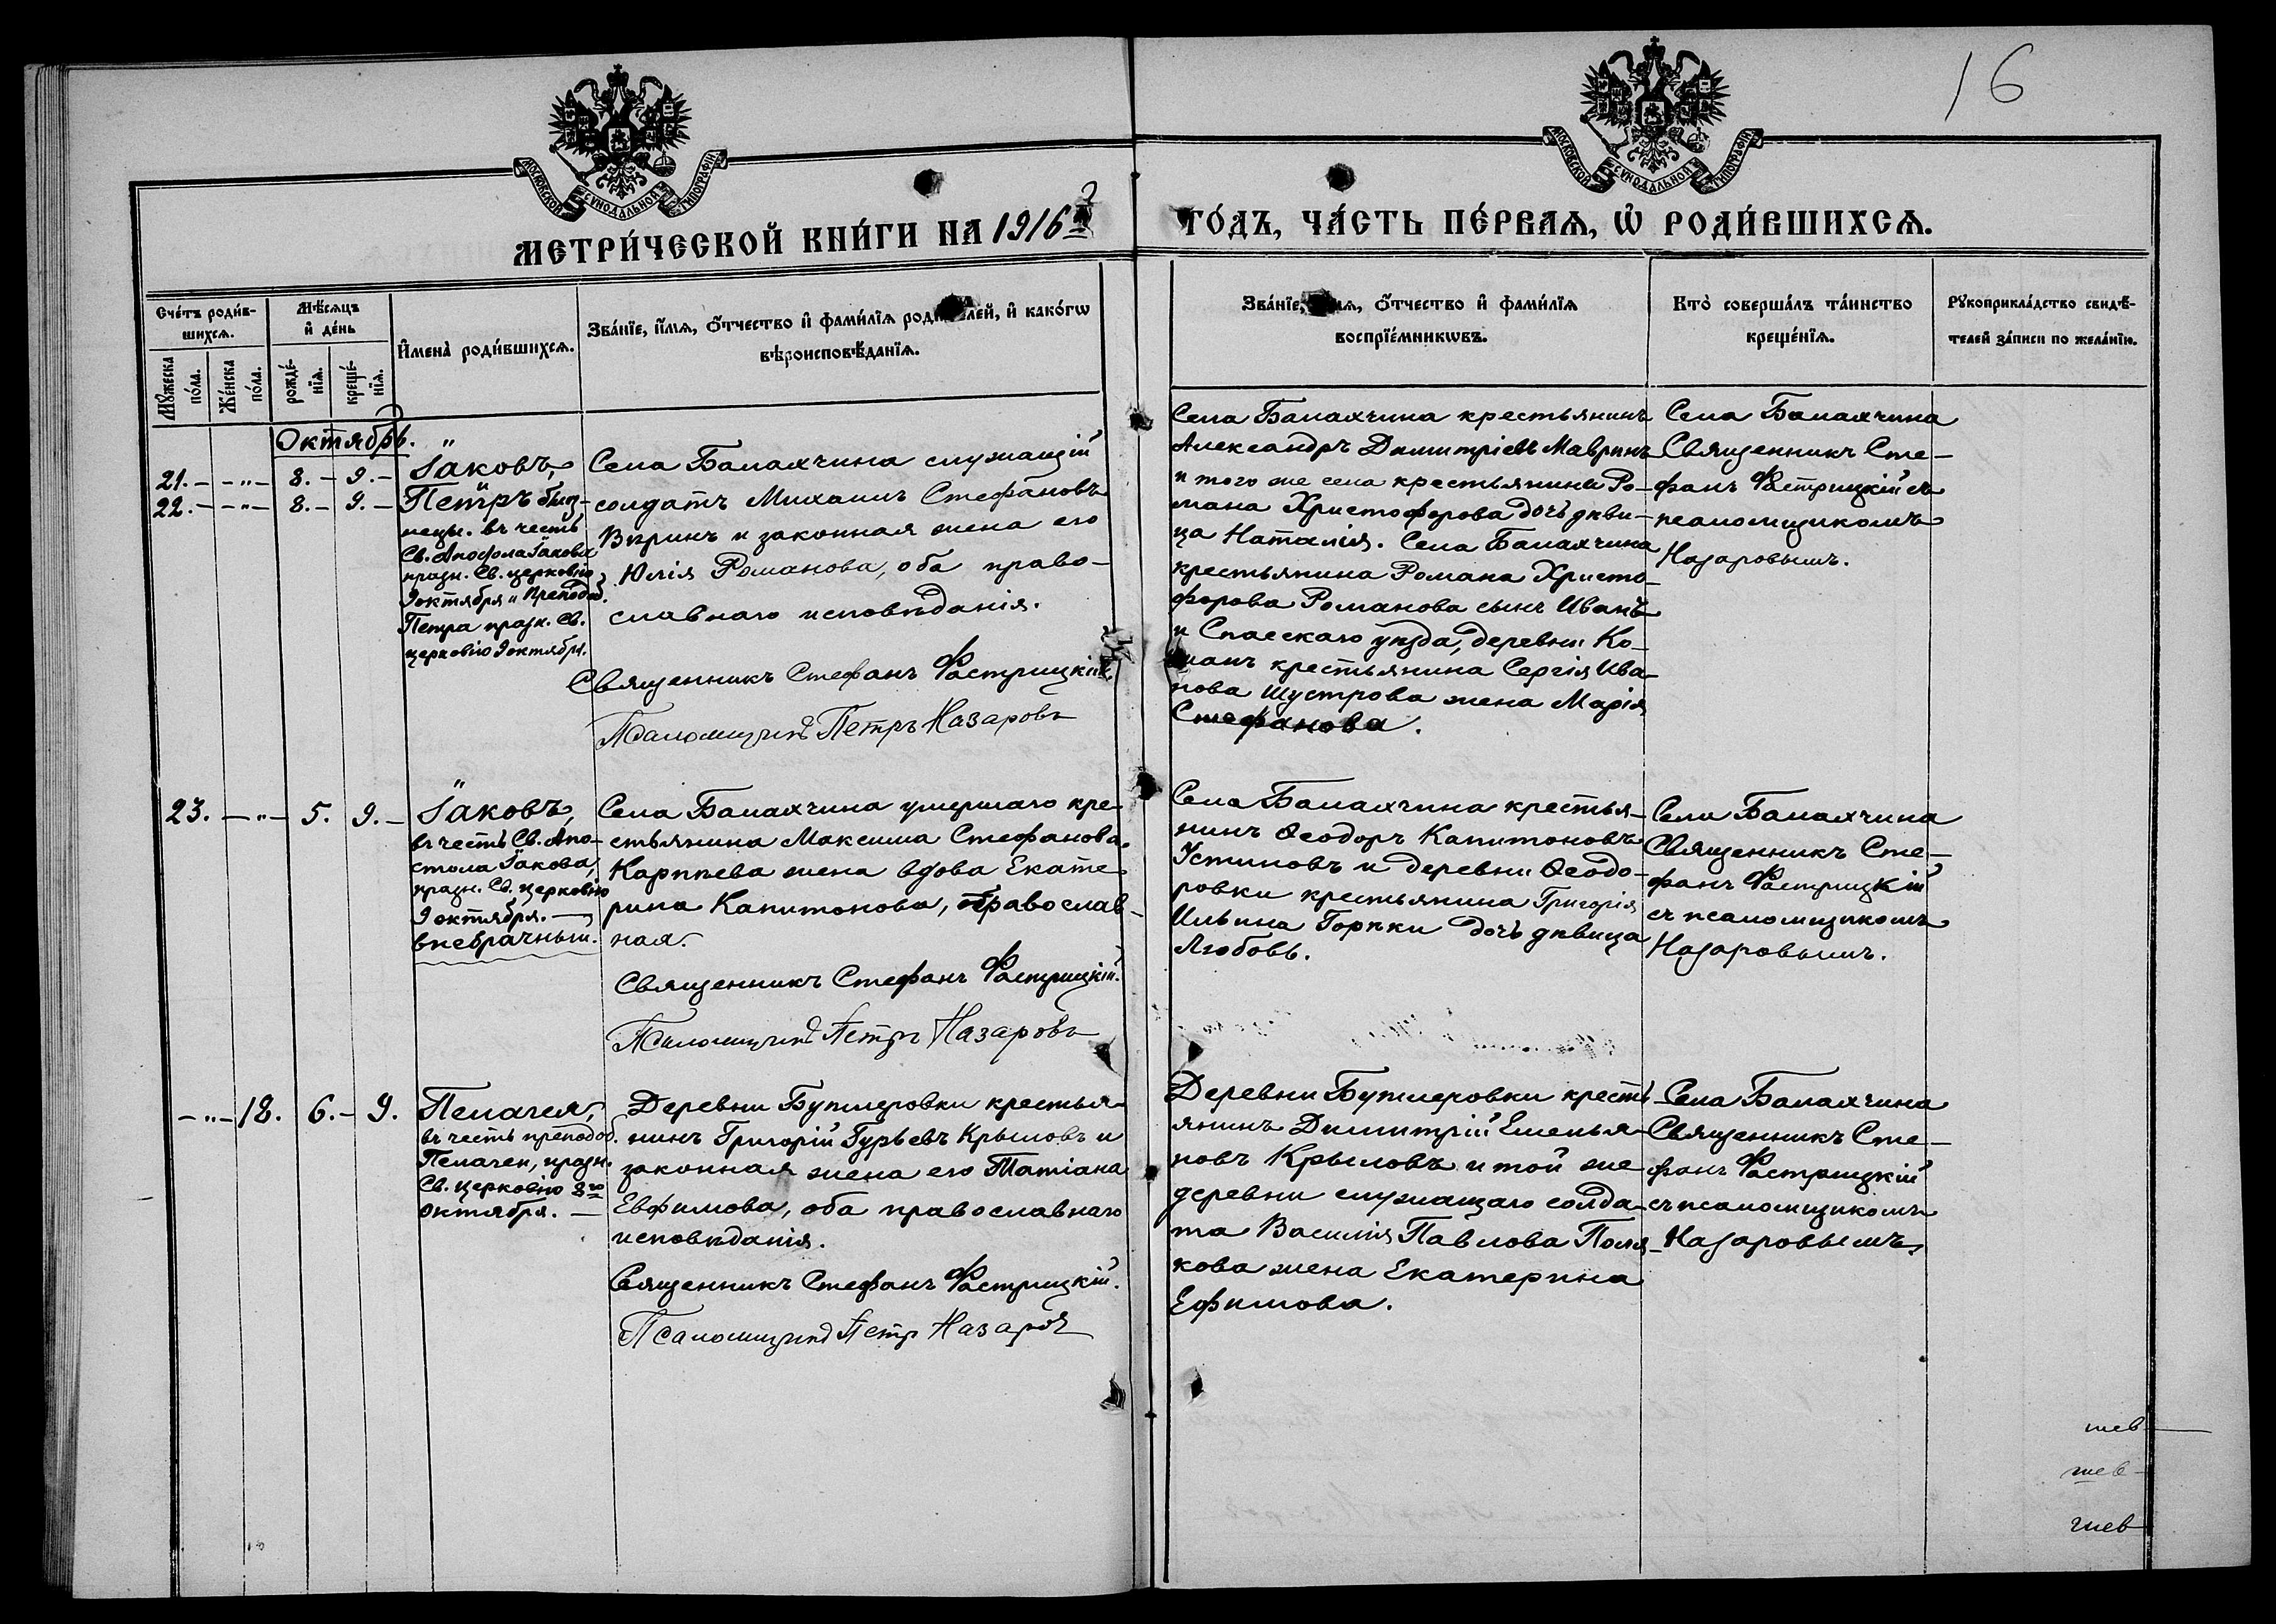 16
МОСКОВСКОЙ СѴНОДАЛЬНОЙ ТИПОГРАФІИ
МОСКОВСКОЙ СѴНОДАЛЬНОЙ ТИПОГРАФІИ
МЕТРИ́ЧЕСКОЙ КНИ́ГИ НА 1916й
ГО́ДЪ, ЧА́СТЬ ПЕ́РВАѦ, Ѡ РОДИ́ВШИХСѦ.
Сче́тъ роди́в-
шихсѧ.
Мꙋжеска по́ла.
Же́нска по́ла.
Мѣ́сѧцъ
и҆ де́нь
рожде́-
нїѧ.
креще́-
нїѧ.
И҆мена̀ роди́вшихсѧ.
Зва́нїе, и҆́мѧ, ѻ҆́тчество и҆ фами́лїѧ родителей, и҆ како́гѡ
вѣроисповѣ́данїѧ.
Зва́нїе, имѧ, ѻ҆́тчество и҆ фами́лїѧ
воспрїе́мникѡвъ.
Кто̀ соверша́лъ та́инство
креще́нїѧ.
Рꙋкоприкла́дство свидѣ́-
телей за́писи по жела́нїю.
Октябрь.
21. - - „ - 8. - 9. -
22. - - „ - 8. - 9. -
Іаковъ,
Петръ близ-
нецы. въ честь
Св. Апостола Іакова
празн. Св. церковію
9 октября и Преподоб.
Петра празн. Св.
церковію 9 октября.
Села Балахчина служащій
солдатъ Михаилъ Стефановъ
Виринъ и законная жена его
Юлія Романова, оба право-
славнаго исповѣданія.
Священникъ Стефанъ Фастрицкій.
Псаломщикъ Петръ Назаровъ
Села Балахчина крестьянинъ
Александръ Димитріевъ Мавринъ
и того же села крестьянина Ро-
мана Христофорова дочь дѣви-
ца Наталія. Села Балахчина
крестьянина Романа Христо-
форова Романова сынъ Иванъ
и Спасскаго уѣзда, деревни Ко-
крестьянина Сергія Ива-
нова Шустрова жена Марія
Стефанова.
Села Балахчина
Священникъ Сте-
фанъ Фастрицкій съ
псаломщикомъ
Назаровымъ.
23. - „ - 5. 9. -
Іаковъ,
въ честь Св. Апо-
стола Іакова,
празн. Св. церковію
9 октября. -
внебрачный.
Села Балахчина умершаго кре-
стьянина Максима Стефанова
Карпѣева жена вдова Екате-
рина Капитонова, православ-
ная.
Священникъ Стефанъ Фастрицкій.
Псаломщикъ Петръ Назаровъ
Села Балахчина крестья-
нинъ Ѳеодоръ Капитоновъ
Устиновъ и деревни Ѳеодо-
ровки крестьянина Григорія
Ильина Горѣки дочь дѣвица
Любовь.
Села Балахчина
Священникъ Сте-
фанъ Фастрицкій
съ псаломщикомъ
Назаровымъ.
- „ - 18. 6. - 9.
Пелагея,
въ честь преподоб.
Пелагеи, празн.
Св. церковію 8го
октября. -
Деревни Бутлеровки крестья-
нинъ Григорій Гурьевъ Крыловъ и
законная жена его Татіана
Евфимова, оба православнаго
исповѣданія.
Священникъ Стефанъ Фастрицкій.
Псаломщикъ Петръ Назаровъ
Деревни Бутлеровки кресть-
янинъ Димитрій Емелья-
новъ Крыловъ и той же
деревни служащаго солда-
та Василія Павлова Поля-
кова жена Екатерина
Ефимова.
Села Балахчина
Священникъ Сте-
фанъ Фастрицкій
съ псаломщикомъ
Назаровымъ.